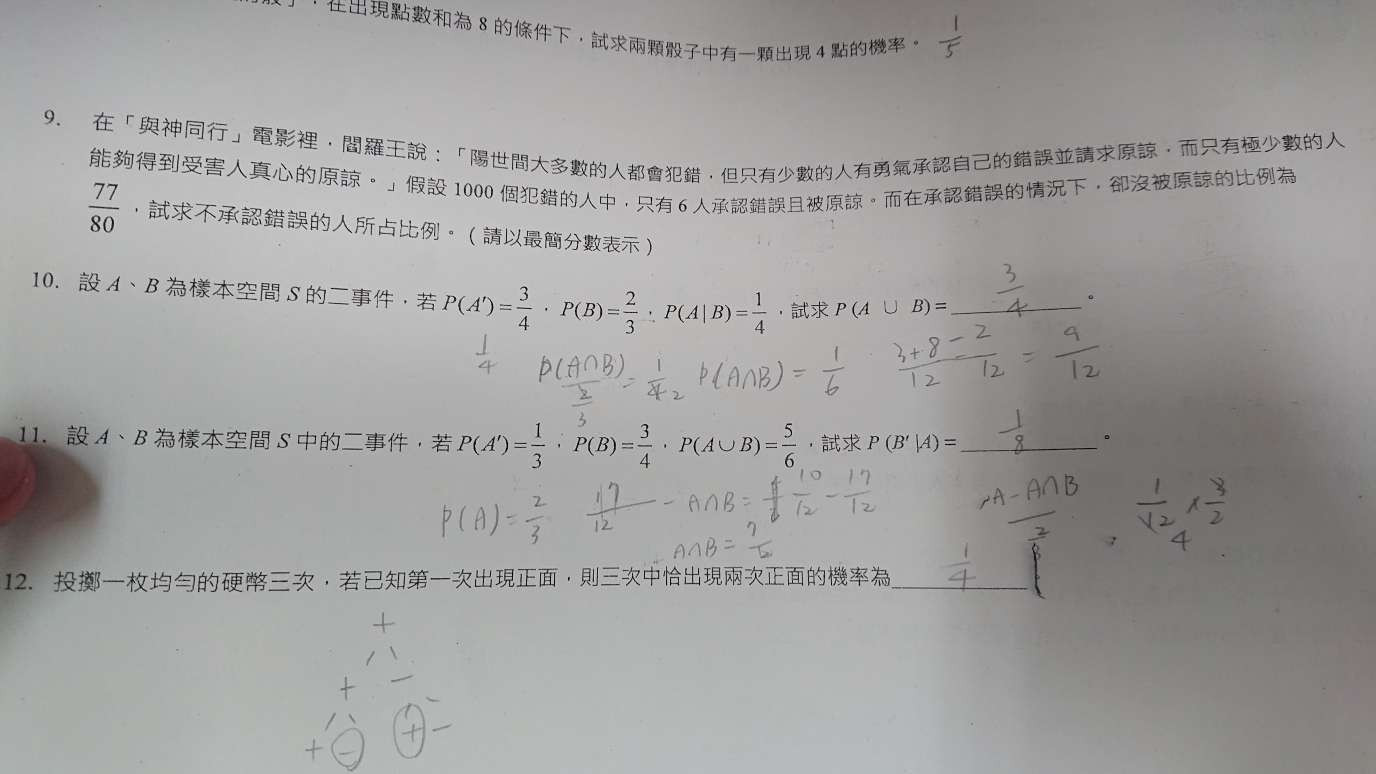 在出現點數和為 8 的條件下，試求兩顆骰子中有一顆出現 4 點的機率。 1/5
9. 在「與神同行」電影裡，閻羅王說：「陽世間大多數的人都會犯錯，但只有少數的人有勇氣承認自己的錯誤並請求原諒，而只有極少數的人
能夠得到受害人真心的原諒。」假設 1000 個犯錯的人中，只有 6 人承認錯誤且被原諒。而在承認錯誤的情況下，卻沒被原諒的比例為
77/80，試求不承認錯誤的人所占比例。（請以最簡分數表示）
10. 設 A、B 為樣本空間 S 的二事件，若 P(A′)=3/4，P(B)=2/3，P(A|B)=1/4，試求 P (A ∪ B)= 3/4。
1/4 P(A∩B)/(2/3) = 1/4 2 P(A∩B) = 1/6 3+8-2/12 12 = 9/12
11. 設 A、B 為樣本空間 S 中的二事件，若 P(A′)=1/3，P(B)=3/4，P(A∪B)=5/6，試求 P (B′|A)= 1/8。
P(A)=2/3 17/12 - A∩B = 10/12 - 17/12 A-A∩B / 2/3 1/12 × 3/2 4
A∩B = 7/12
12. 投擲一枚均勻的硬幣三次，若已知第一次出現正面，則三次中恰出現兩次正面的機率為 1/4
+
+ -
+ - + -